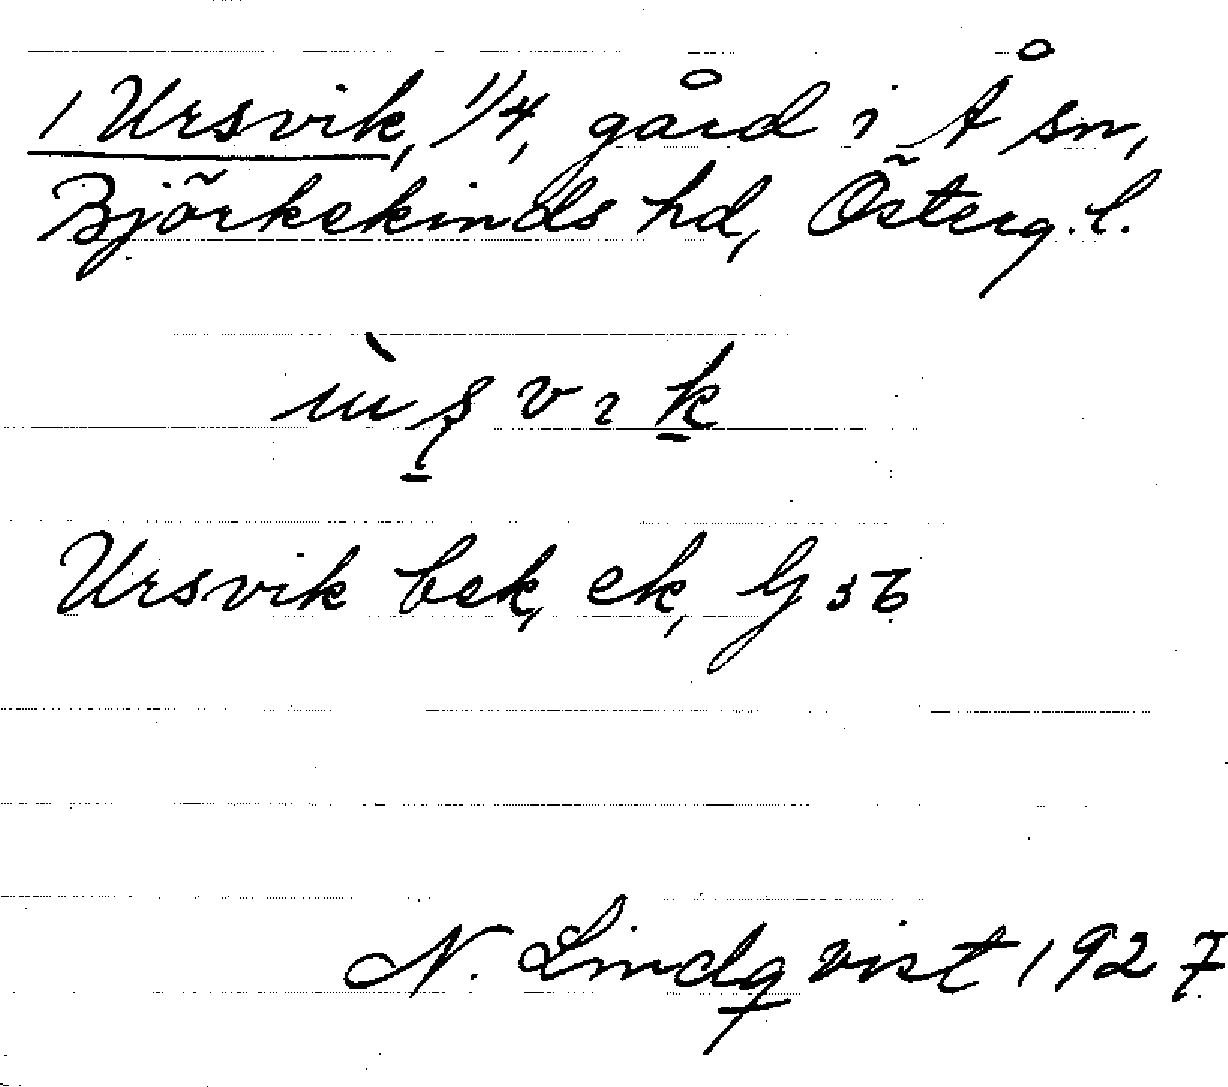 1 Ursvik, 1/4, gård i Å sn,
Björkekinds hd, Österg. l.
Ursvik bek, ek, G 56
N. Lindqvist 1927